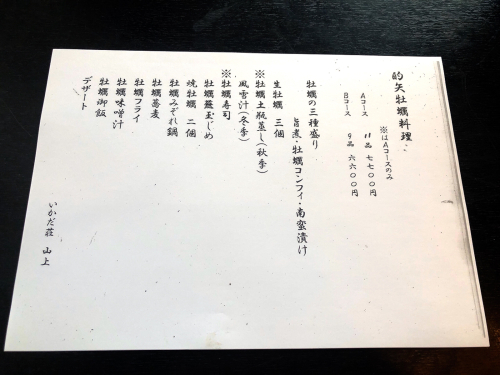 的矢牡蠣料理
※はAコースのみ
Aコース 11品 七七〇〇円
Bコース 9品 六六〇〇円
牡蠣の三種盛り
旨煮・牡蠣コンフィ・南蛮漬け
生牡蠣 三個
※牡蠣土瓶蒸し(秋季)
風雪汁(冬季)
※牡蠣寿司
牡蠣羅玉じめ
焼牡蠣 二個
牡蠣みぞれ鍋
牡蠣蕎麦
牡蠣フライ
牡蠣味噌汁
牡蠣御飯
デザート
いかだ荘 山上